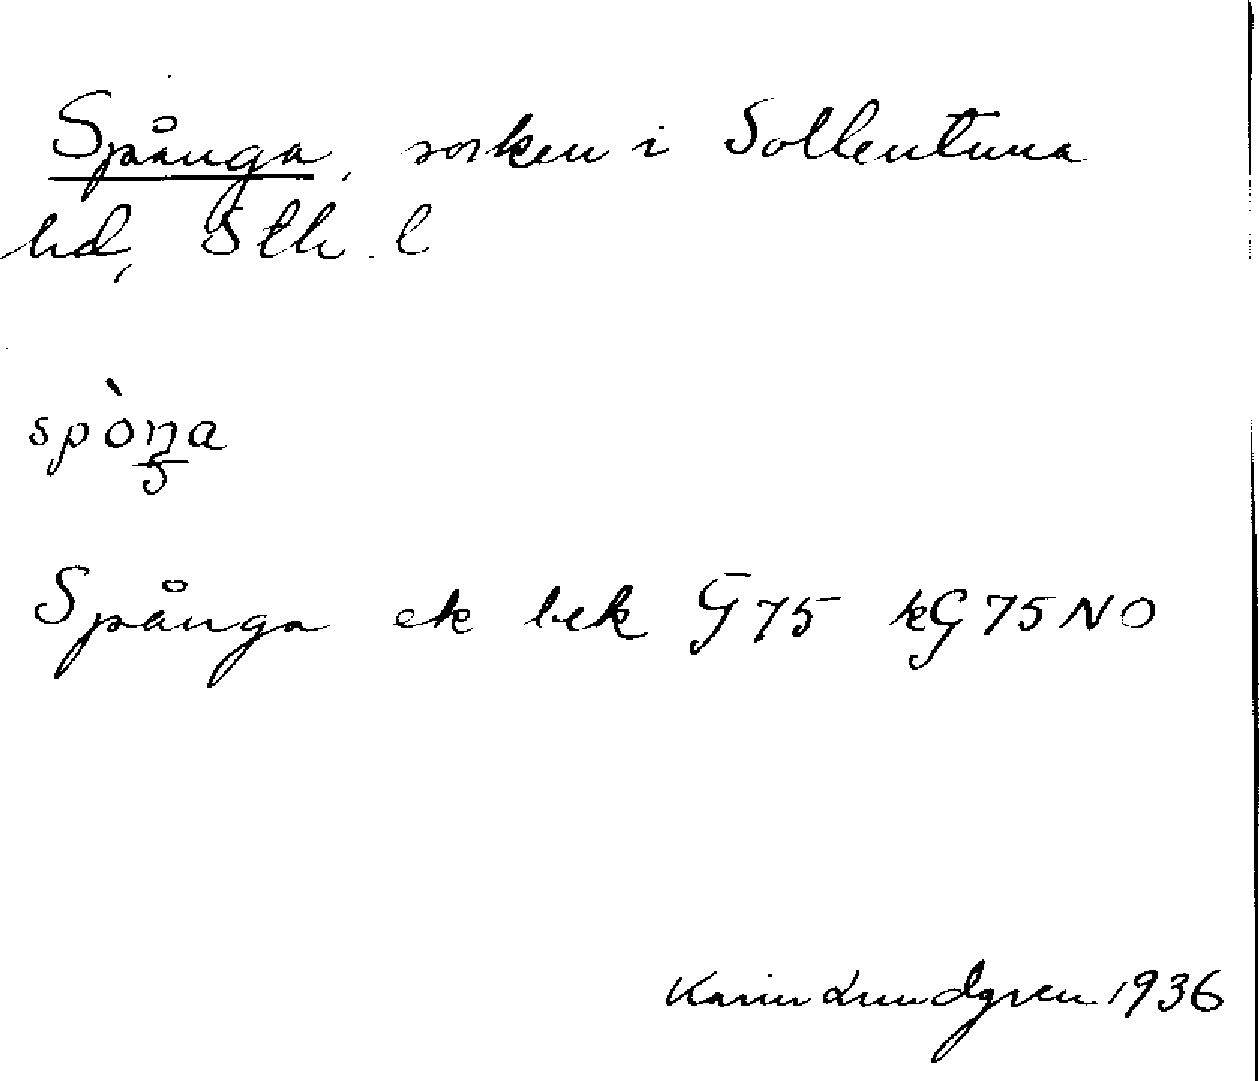 Spånga, socken i Sollentuna
hd, Sth. l
spòŋa
Spånga ek bek G75 kG75NO
Karin Lundgren 1936